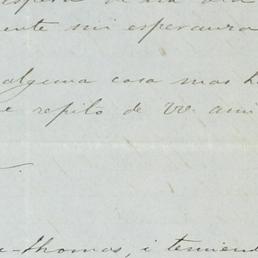 ente mi esperanza
alguna cosa mas h
e repito de VV. ami
-Thomas, i teniend